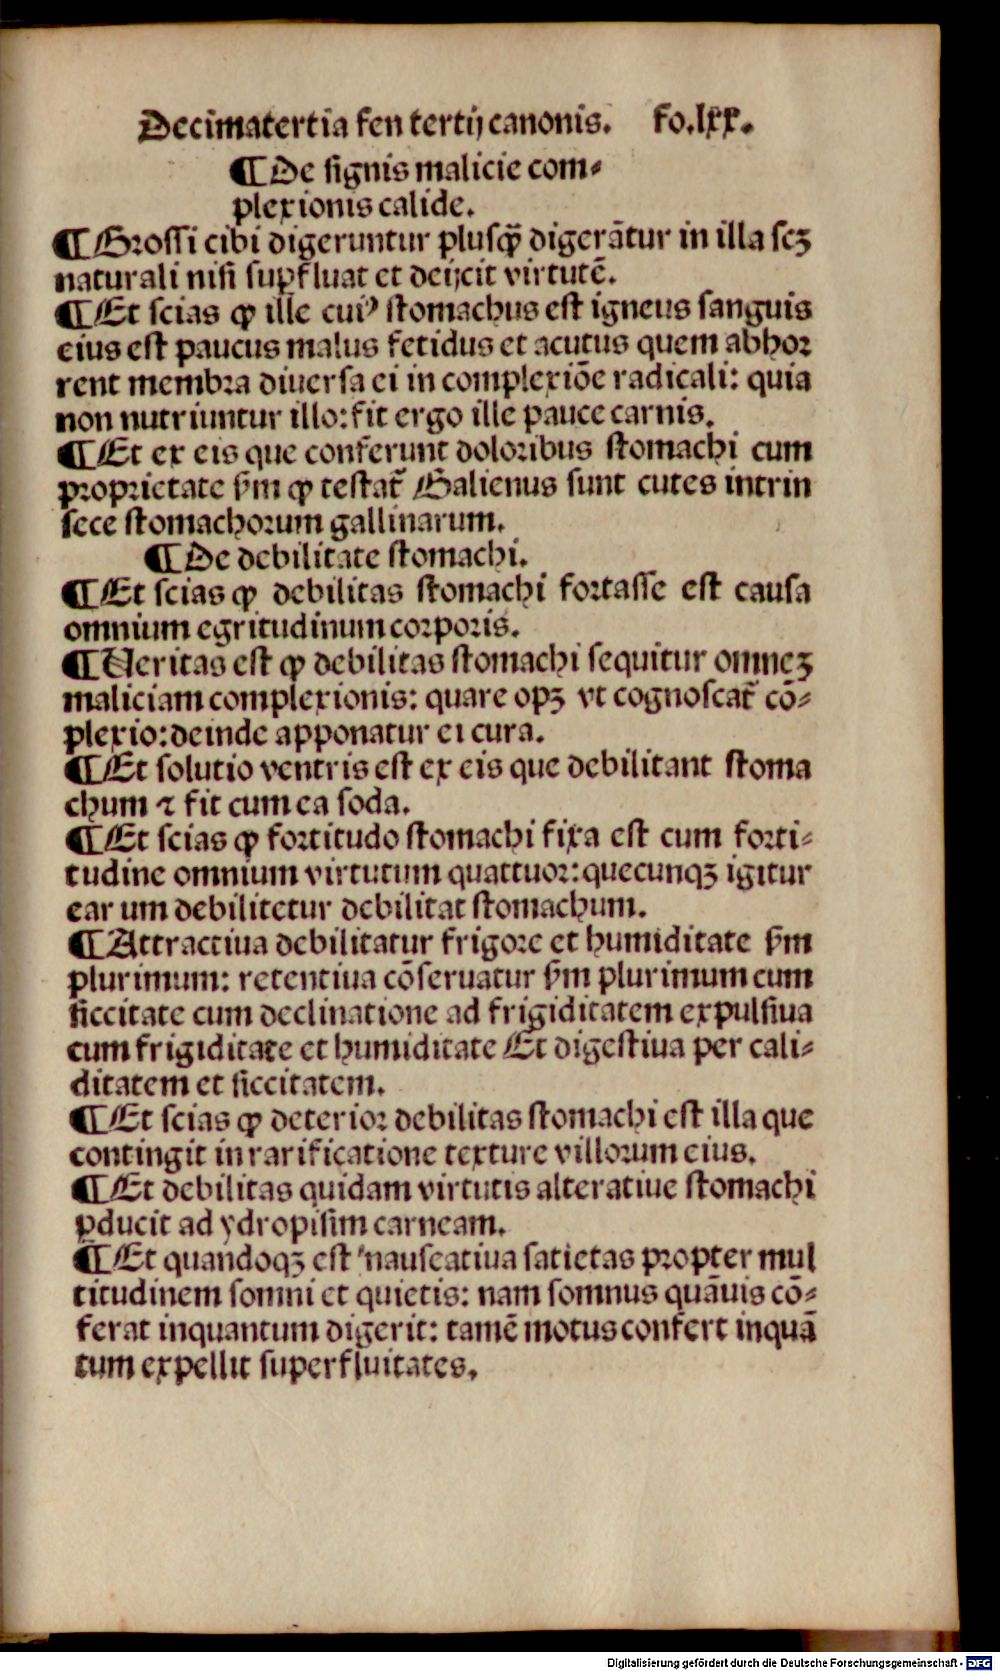 Decimatertia fen tertij canonis. fo.lxx.
¶ De signis malicie com⸗
plexionis calide.
¶ Grossi cibi digeruntur plusq̃ digerãtur in illa scꝫ
naturali nisi suꝑfluat et deijcit virtutẽ.
¶ Et scias ꝙ ille cuiꝰ stomachus est igneus sanguis
eius est paucus malus fetidus et acutus quem abhor
rent membra diuersa ei in complexiõe radicali: quia
non nutriuntur illo: fit ergo ille pauce carnis.
¶ Et ex eis que conferunt doloribus stomachi cum
proprietate ẜm ꝙ testat᷑ Galienus sunt cutes intrin
sece stomachorum gallinarum.
¶ De debilitate stomachi.
¶ Et scias ꝙ debilitas stomachi fortasse est causa
omnium egritudinum corporis.
¶ Ueritas est ꝙ debilitas stomachi sequitur omneꝫ
maliciam complexionis: quare opꝫ vt cognoscat᷑ cõ⸗
plexio: deinde apponatur ei cura.
¶ Et solutio ventris est ex eis que debilitant stoma
chum ⁊ fit cum ea soda.
¶ Et scias ꝙ fortitudo stomachi fixa est cum forti⸗
tudine omnium virtutum quattuor: quecunqꝫ igitur
ear um debilitetur debilitat stomachum.
¶ Attractiua debilitatur frigore et humiditate ẜm
plurimum: retentiua cõseruatur ẜm plurimum cum
siccitate cum declinatione ad frigiditatem expulsiua
cum frigiditate et humiditate Et digestiua per cali⸗
ditatem et siccitatem.
¶ Et scias ꝙ deterior debilitas stomachi est illa que
contingit in rarificatione texture villorum eius.
¶ Et debilitas quidam virtutis alteratiue stomachi
ꝓducit ad ydropisim carneam.
¶ Et quandoqꝫ est nauseatiua satietas propter mul
titudinem somni et quietis: nam somnus quãuis cõ⸗
ferat inquantum digerit: tamẽ motus confert inquã
tum expellit superfluitates.
Digitalisierung gefördert durch die Deutsche Forschungsgemeinschaft - DFG